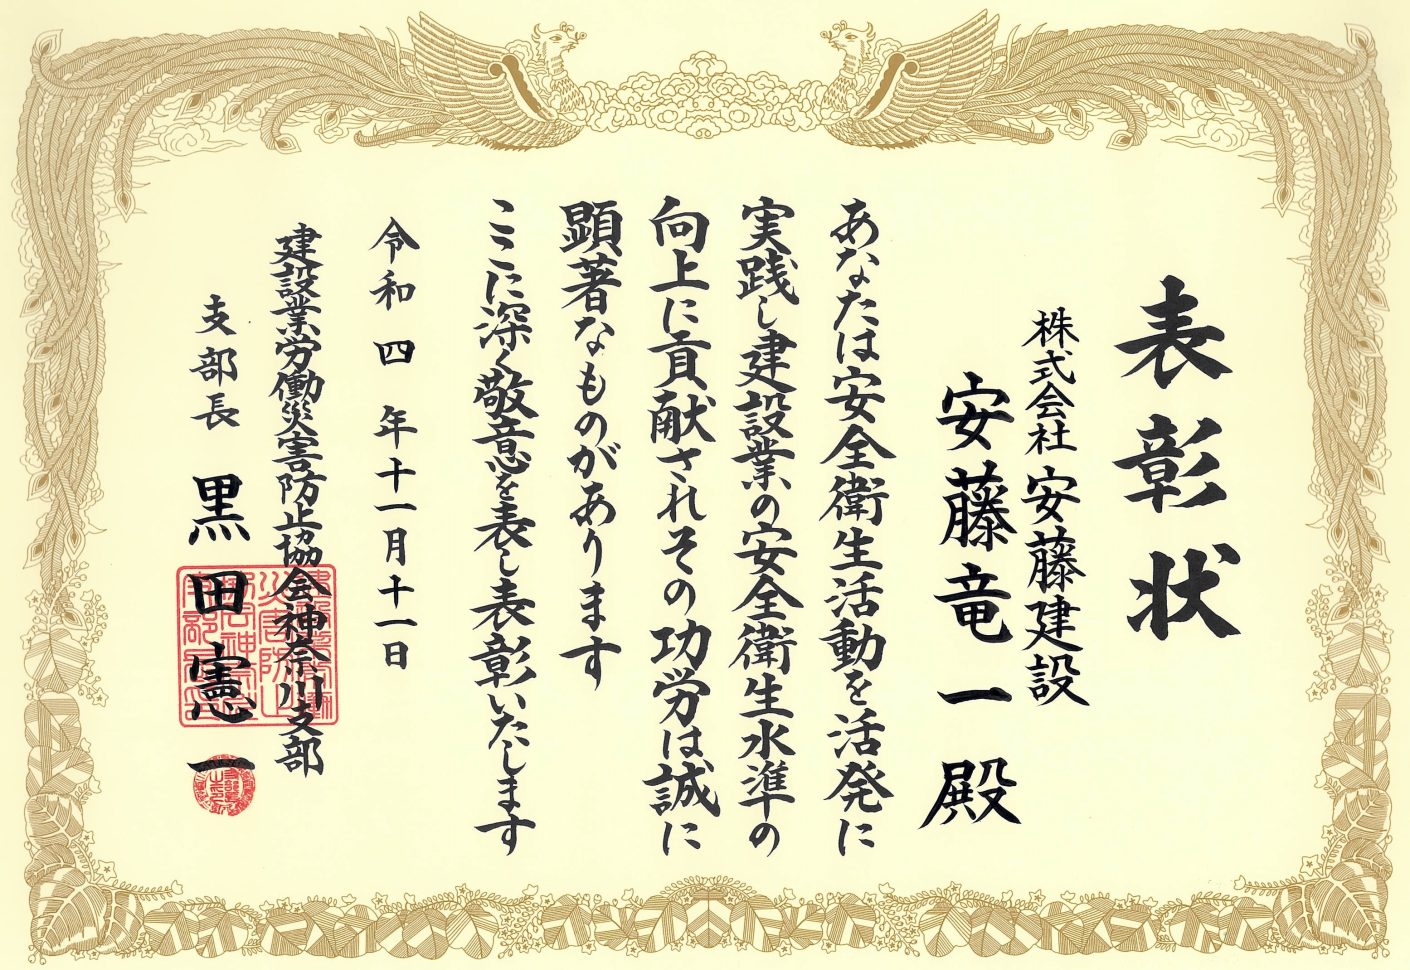 表彰状
株式会社 安藤建設
安藤竜一殿
あなたは安全衛生活動を活発に
実践し建設業の安全衛生水準の
向上に貢献されその功労は誠に
顕著なものがあります
ここに深く敬意を表し表彰いたします
令和四年十一月十一日
建設業労働災害防止協会神奈川支部
支部長 黒田憲一